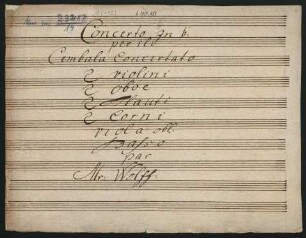 Concerto In b.
per il
Cembala Concertato
2 violini
2 oboe
2 flauti
2 Corni
viola oll.
Basso
par
Mr. Wolff.